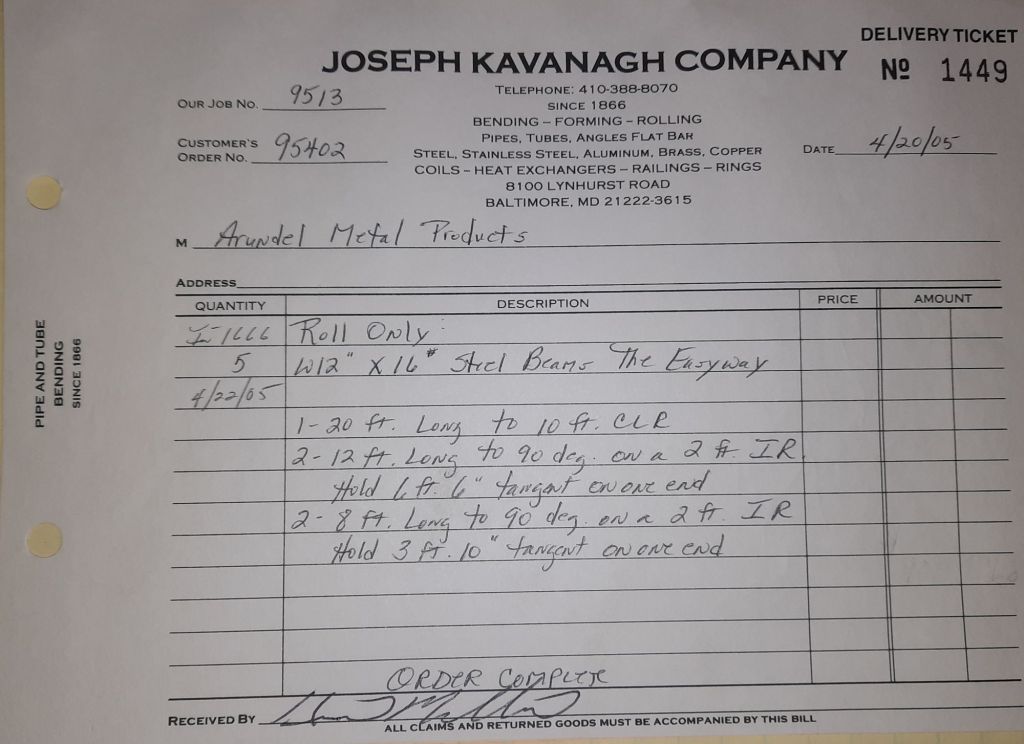 DELIVERY TICKET
JOSEPH KAVANAGH COMPANY
Nº 1449
TELEPHONE: 410-388-8070
SINCE 1866
BENDING – FORMING – ROLLING
PIPES, TUBES, ANGLES FLAT BAR
STEEL, STAINLESS STEEL, ALUMINUM, BRASS, COPPER
COILS – HEAT EXCHANGERS – RAILINGS – RINGS
8100 LYNHURST ROAD
BALTIMORE, MD 21222-3615
OUR JOB NO. 9513
CUSTOMER'S
ORDER NO. 95402
DATE 4/20/05
M Arundel Metal Products
ADDRESS
QUANTITY DESCRIPTION PRICE AMOUNT
I-1666 Roll Only:
5 W12" X 16# Steel Beams The Easyway
4/22/05
1-20 ft. Long to 10 ft. CLR
2-12 ft. Long to 90 deg. on a 2 ft. IR
Hold 6 ft. 6" tangent on one end
2-8 ft. Long to 90 deg. on a 2 ft. IR
Hold 3 ft. 10" tangent on one end
ORDER COMPLETE
RECEIVED BY
ALL CLAIMS AND RETURNED GOODS MUST BE ACCOMPANIED BY THIS BILL
PIPE AND TUBE
BENDING
SINCE 1866